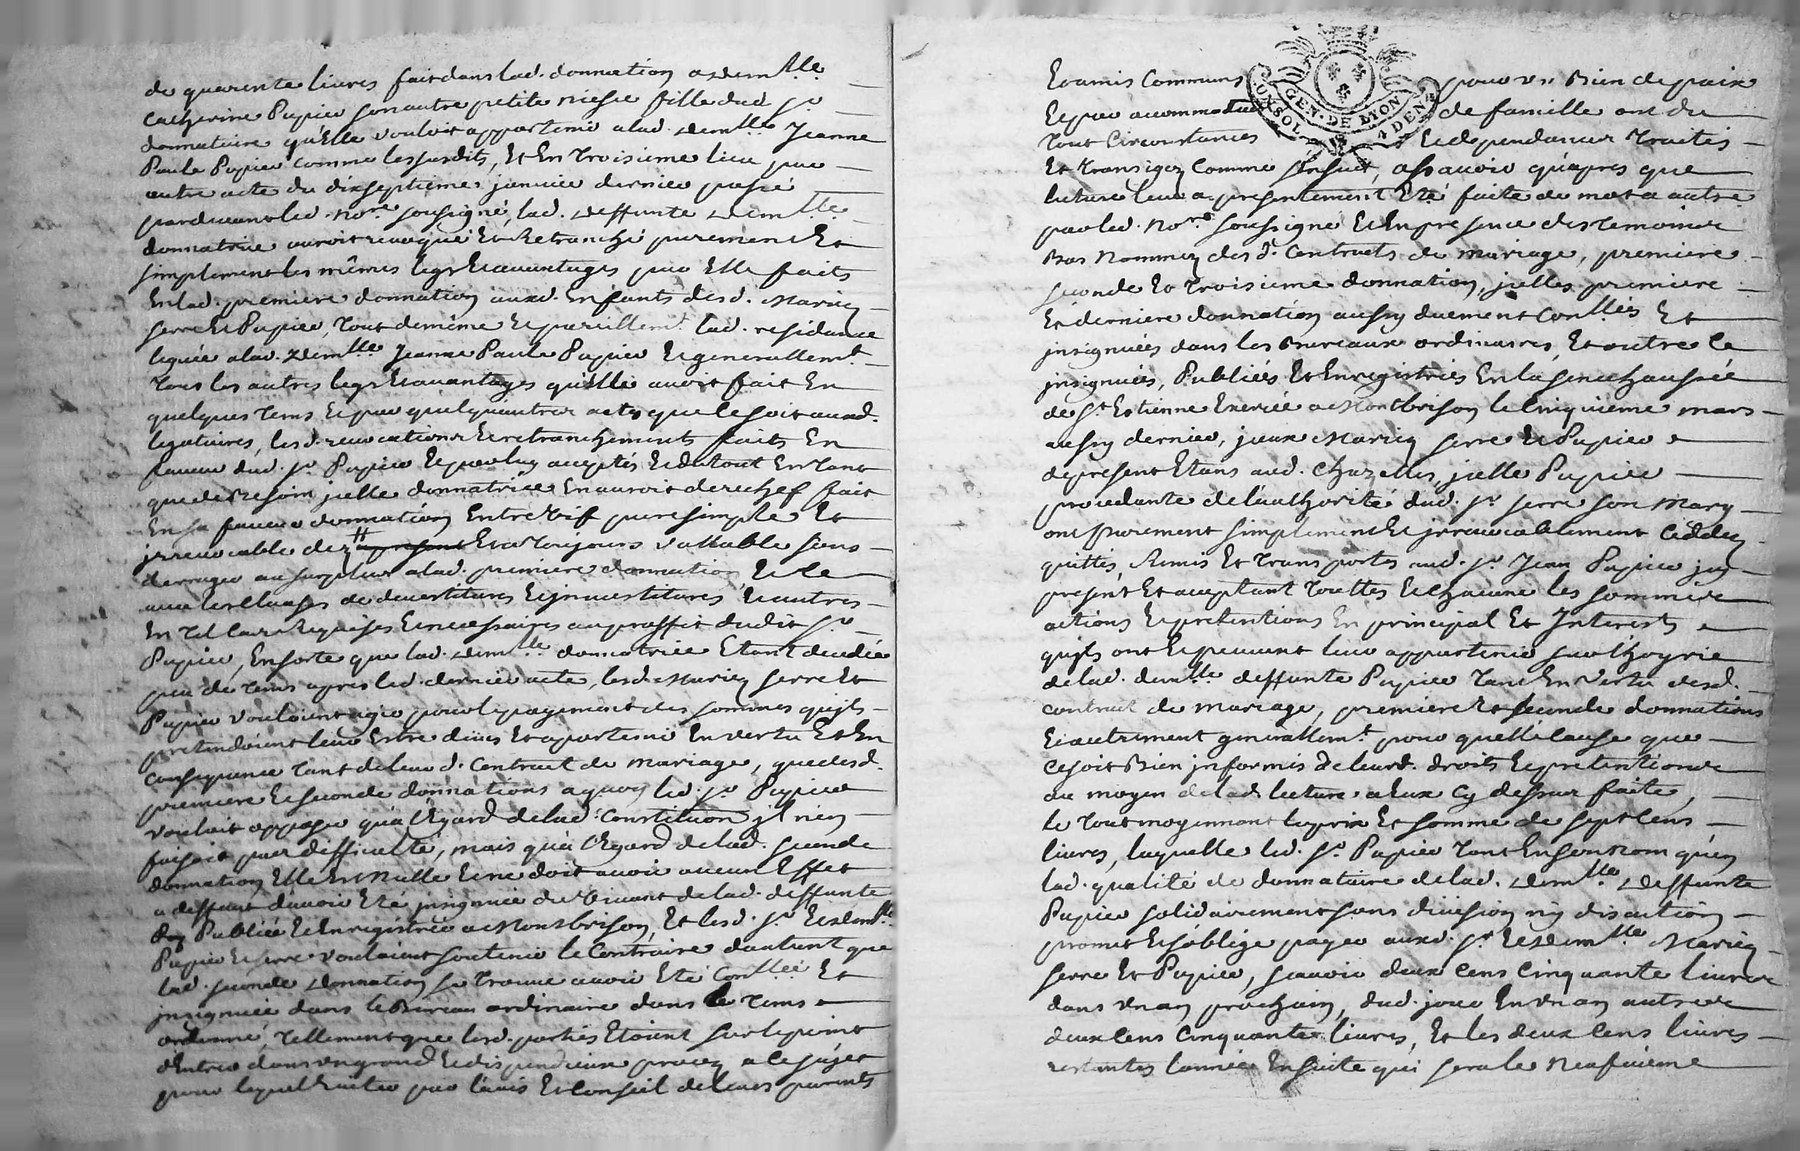 de quarente livres fait dans lad. donnation a demlle
Catherine Papier son autre petite niesse fille dud. Sr
donnataire qu'elle vouloit appartenir a lad. demlle Jeanne
Paule Papier comme les susdits, Et En Troisieme lieu par
autre acte du dixseptieme janvier dernier passé
pardevant led. Nore soussigné, lad. deffunte demlle
donnatrice auroit revoqué Et Retranché purement Et
simplement les mêmes legs Et avantages par Elle faits
En lad. premiere donnation auxd. Enfants desd. Mariez
Serre Et Papier, tout de même Et pareillemt lad. residance
leguée a lad. demlle Jeanne Paule Papier Et generallemt
Tous les autres legs Et avantages qu'elle avoit fait En
quelques tems Et par quelqu'autres actes que ce soit auxd.
legataires, lesd. revocations Et retranchements faits En
faveur dud. Sr Papier Et par luy acceptés Et du tout En tant
que de Besoin jcelle donnatrice En auroit derechef fait
En sa faveur donnation Entre vif pure simple Et
jrrevocable dez a present Et a toujours vallable sans
derroger au surplus a lad. premiere donnation, Et le
avec les clauses de devestitures Et jnvestitures, Et autres
En tel cas Requises Et necessaires au proffit dudit Sr
Papier, En sorte que lad. demlle donnatrice Etant decedée
peu de tems apres led. dernier acte, lesd. Mariez Serre Et
Papier vouloient agir pour le payement des sommes qu'jls
pretendoient leur Estre dües Et apartenir En vertu Et En
consequence tant de leur d. Contract de mariage, que desd.
premiere Et seconde donnations a quoy led. Sr Papier
vouloit opposer qu'a l'Egard de lad. Constitution jl n'en
faisoit pas difficulté, mais qu'a l'Egard de lad. seconde
donnation Elle Est Nulle Et ne doit avoir aucun Effet
a deffaut d'avoir Eté jnsignuée du Vivant de lad. deffunte
Publiée Et Enregistrée a Montbrison, Et lesd. Sr Et demlle
Papier Et Serre vouloient soutenir le Contraire d'autant que
lad. seconde donnation se trouve avoir Eté Conllée Et
jnsignuée dans le Bureau ordinaire dans le tems
ordonné, tellement que lesd. parties Etoient sur le point
d'Entrer dans un grand Et dispendieux procez a ce sujet
pour lequel Eviter par l'avis Et Conseil de leurs parents
Et amis Communs pour un Bien de paix
Et pour accommoder de famille ont du
tout Circonstances Et dependances traités
Et transigez Comme s'ensuit, assavoir qu'apres que
lecture leur a presentement Eté faite de mot a autre
par led. Nore soussigné Et En presence des temoins
Bas Nommez desd. Contracts de mariage, premiere
seconde Et troisieme donnation, jcelles premiere
Et derniere donnation aussy duement Conllées Et
jnsignuées dans les Bureaux ordinaires, Et outre ce
jnsignuées, Publiées Et Enregistrées En la senechaussée
de St Estienne Exercée a Montbrison le Cinquieme mars
aussy dernier, jceux Mariez Serre Et Papier
de present Etans aud. Chazelles, jcelle Papier
procedante de l'authorité dud. Sr Serre son Mary
ont purement simplement Et jrrevocablement Ceddez
quittés, Remis Et transportés aud. Sr Jean Papier jcy
present Et acceptant touttes Et chacune les sommes
actions Et pretentions En principal Et Interests
qu'jls ont Et peuvent leur appartenir sur l'hoyrie
de lad. demlle deffunte Papier tant En vertu desd.
contract de mariage, premiere Et seconde donnations
Et autrement generallemt pour quelle Cause que
ce soit Bien jnformés de leurd. droits Et pretentions
au moyen de lad. lecture a Eux Cy dessus faite,
le tout moyennant le prix Et somme de sept Cens
livres, laquelle led. Sr Papier tant En son Nom qu'en
lad. qualité de donnataire de lad. demlle deffunte
Papier solidairement sans division ny discution
promet Et s'oblige payer auxd. Sr Et demlle Mariez
Serre Et Papier, scavoir deux Cens Cinquante livres
dans un an prochain, dud. jour En un an autres
deux Cens Cinquante livres, Et les deux Cens livres
restantes l'année Ensuite qui sera le Neufvieme
GEN. DE LYON
4 DEN